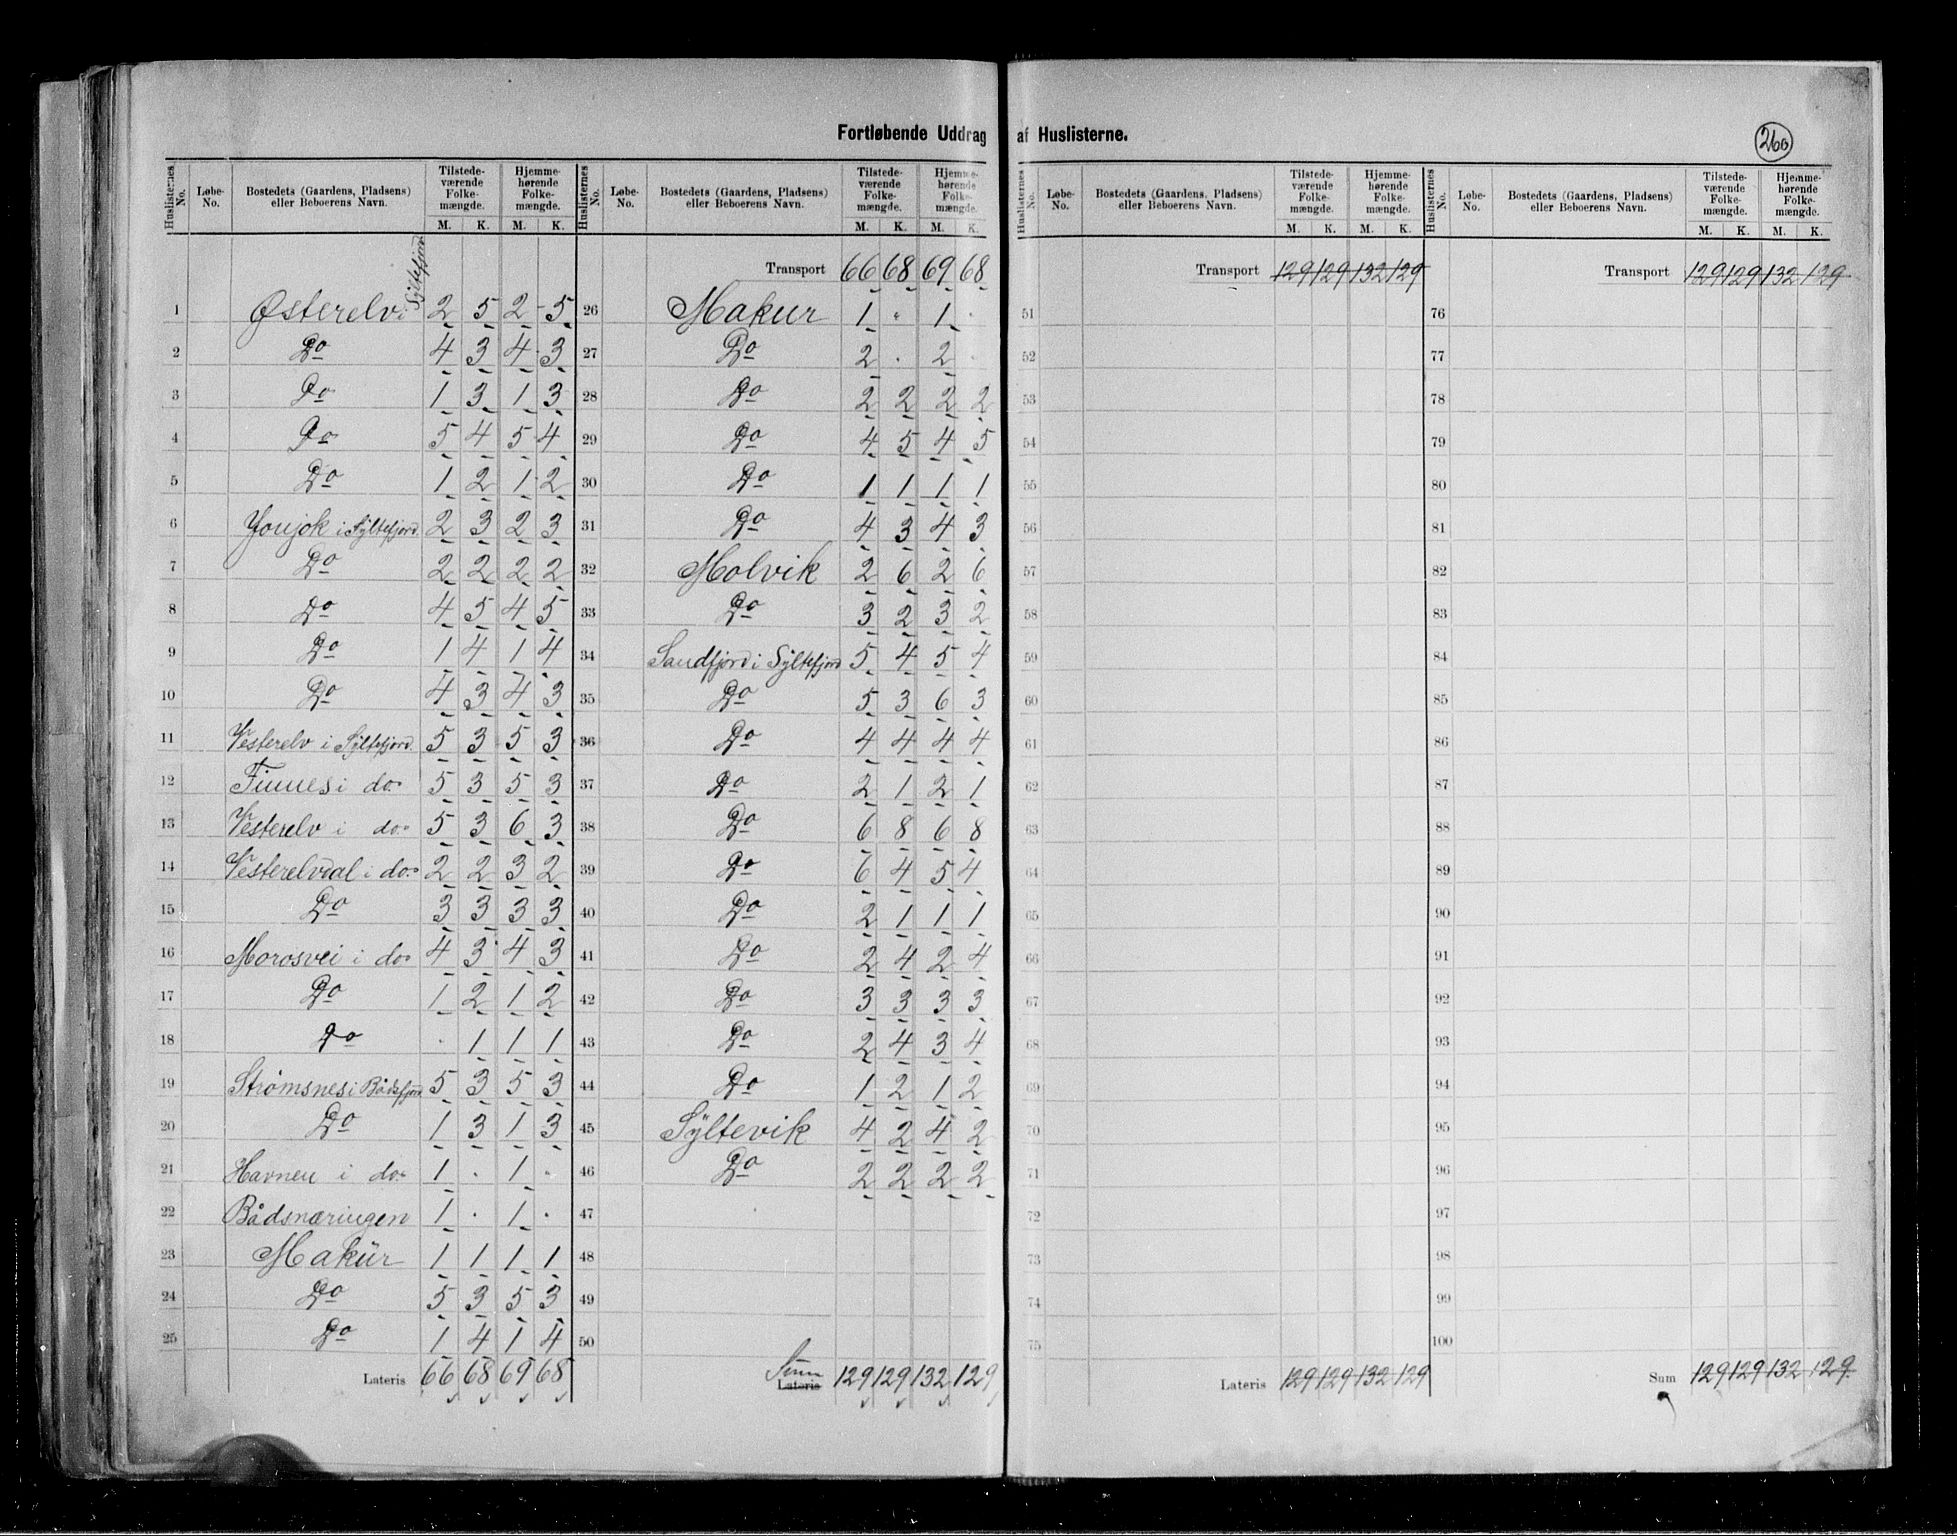 Fortløbende Uddrag af Huslisterne.
260
Huslisternes No. | Løbe-No. | Bostedets (Gaardens, Pladsens) eller Beboerens Navn. | Tilstedeværende Folkemængde. M. K. | Hjemmehørende Folkemængde. M. K.
1 Østerelv i Syltefjord 2 5 2 5
2 Do 4 3 4 3
3 Do 1 3 1 3
4 Do 5 4 5 4
5 Do 1 2 1 2
6 Jonjok i Syltefjord 2 3 2 3
7 Do 2 2 2 2
8 Do 4 5 4 5
9 Do 1 4 1 4
10 Do 4 3 4 3
11 Vesterelv i Syltefjord 5 3 5 3
12 Finnes i do. 5 3 5 3
13 Vesterelv i do. 5 3 6 3
14 Vesterelvdal i do. 2 2 3 2
15 Do 3 3 3 3
16 Morosvei i do. 4 3 4 3
17 Do 1 2 1 2
18 Do . 1 1 1
19 Strømsnes i Bådsfjord 5 3 5 3
20 Do 1 3 1 3
21 Havnen i do. 1 . 1 .
22 Bådsnæringen 1 . 1 .
23 Makür 1 1 1 1
24 Do 5 3 5 3
25 Do 1 4 1 4
Lateris 66 68 69 68
Huslisternes No. | Løbe-No. | Bostedets (Gaardens, Pladsens) eller Beboerens Navn. | Tilstedeværende Folkemængde. M. K. | Hjemmehørende Folkemængde. M. K.
Transport 66 68 69 68
26 Makur 1 . 1 .
27 Do 2 . 2 .
28 Do 2 2 2 2
29 Do 4 5 4 5
30 Do 1 1 1 1
31 Do 4 3 4 3
32 Molvik 2 6 2 6
33 Do 3 2 3 2
34 Sandfjord i Syltefjord 5 4 5 4
35 Do 5 3 6 3
36 Do 4 4 4 4
37 Do 2 1 2 1
38 Do 6 8 6 8
39 Do 6 4 5 4
40 Do 2 1 1 1
41 Do 2 4 2 4
42 Do 3 3 3 3
43 Do 2 4 3 4
44 Do 1 2 1 2
45 Syltevik 4 2 4 2
46 Do 2 2 2 2
47
48
49
50
Sum Lateris 129 129 132 129
Huslisternes No. | Løbe-No. | Bostedets (Gaardens, Pladsens) eller Beboerens Navn. | Tilstedeværende Folkemængde. M. K. | Hjemmehørende Folkemængde. M. K.
Transport 129 129 132 129
51
52
53
54
55
56
57
58
59
60
61
62
63
64
65
66
67
68
69
70
71
72
73
74
75
Lateris 129 129 132 129
Huslisternes No. | Løbe-No. | Bostedets (Gaardens, Pladsens) eller Beboerens Navn. | Tilstedeværende Folkemængde. M. K. | Hjemmehørende Folkemængde. M. K.
Transport 129 129 132 129
76
77
78
79
80
81
82
83
84
85
86
87
88
89
90
91
92
93
94
95
96
97
98
99
100
Sum 129 129 132 129